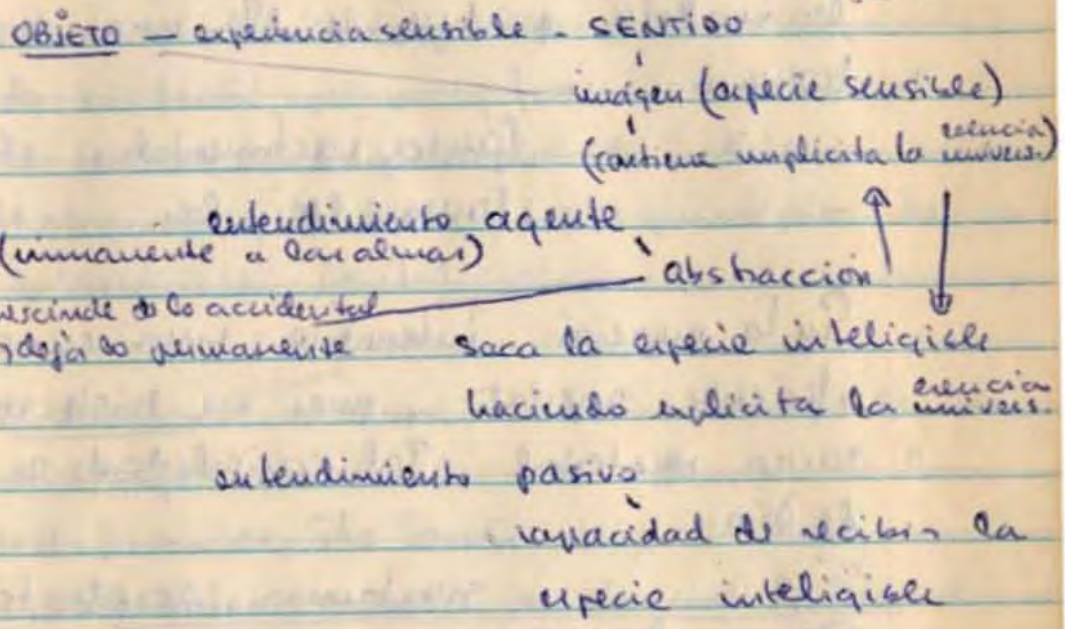 OBJETO - experiencia sensible - SENTIDO
imágen (especie sensible)
(contiene implícita la esencia univers.)
entendimiento agente
(inmanente a las almas)
abstracción
prescinde de lo accidental
y deja lo permanente saca la especie inteligible
haciendo explícita la esencia univers.
entendimiento pasivo
capacidad de recibir la
especie inteligible